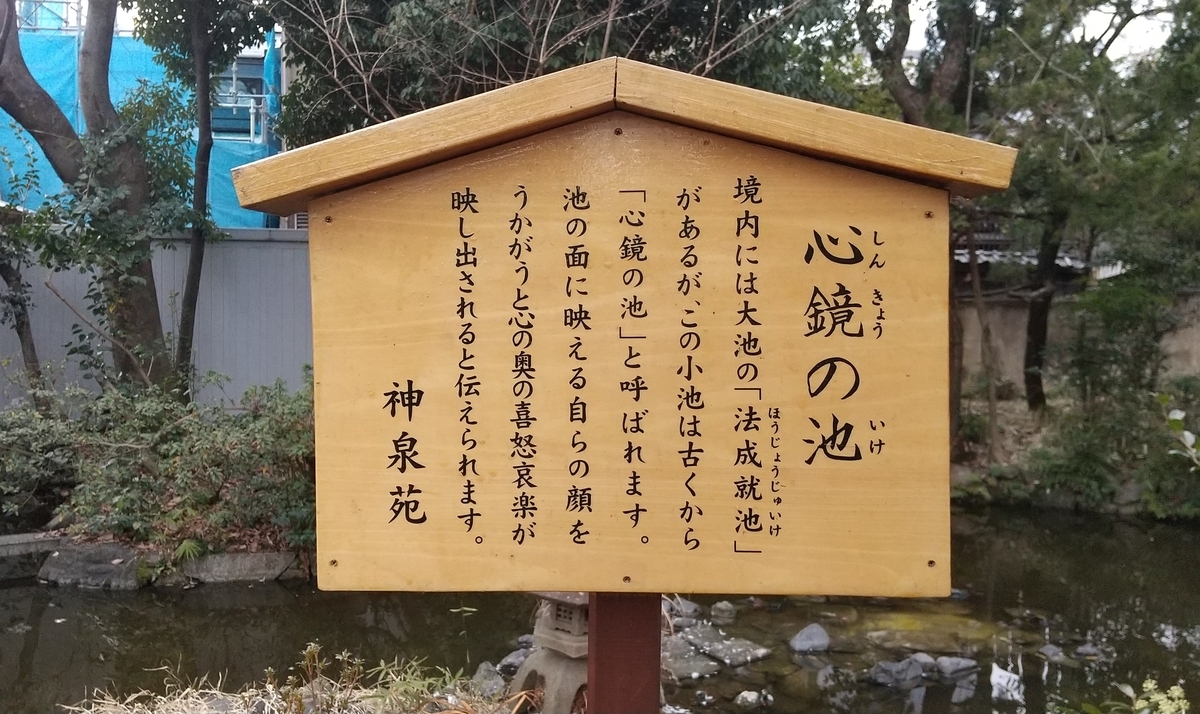 心鏡の池
しんきょう いけ
境内には大池の「法成就池」
ほうじょうじゅいけ
があるが、この小池は古くから
「心鏡の池」と呼ばれます。
池の面に映える自らの顔を
うかがうと心の奥の喜怒哀楽が
映し出されると伝えられます。
神泉苑